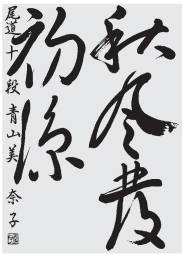 秋風発
初涼
尾道十段青山美奈子